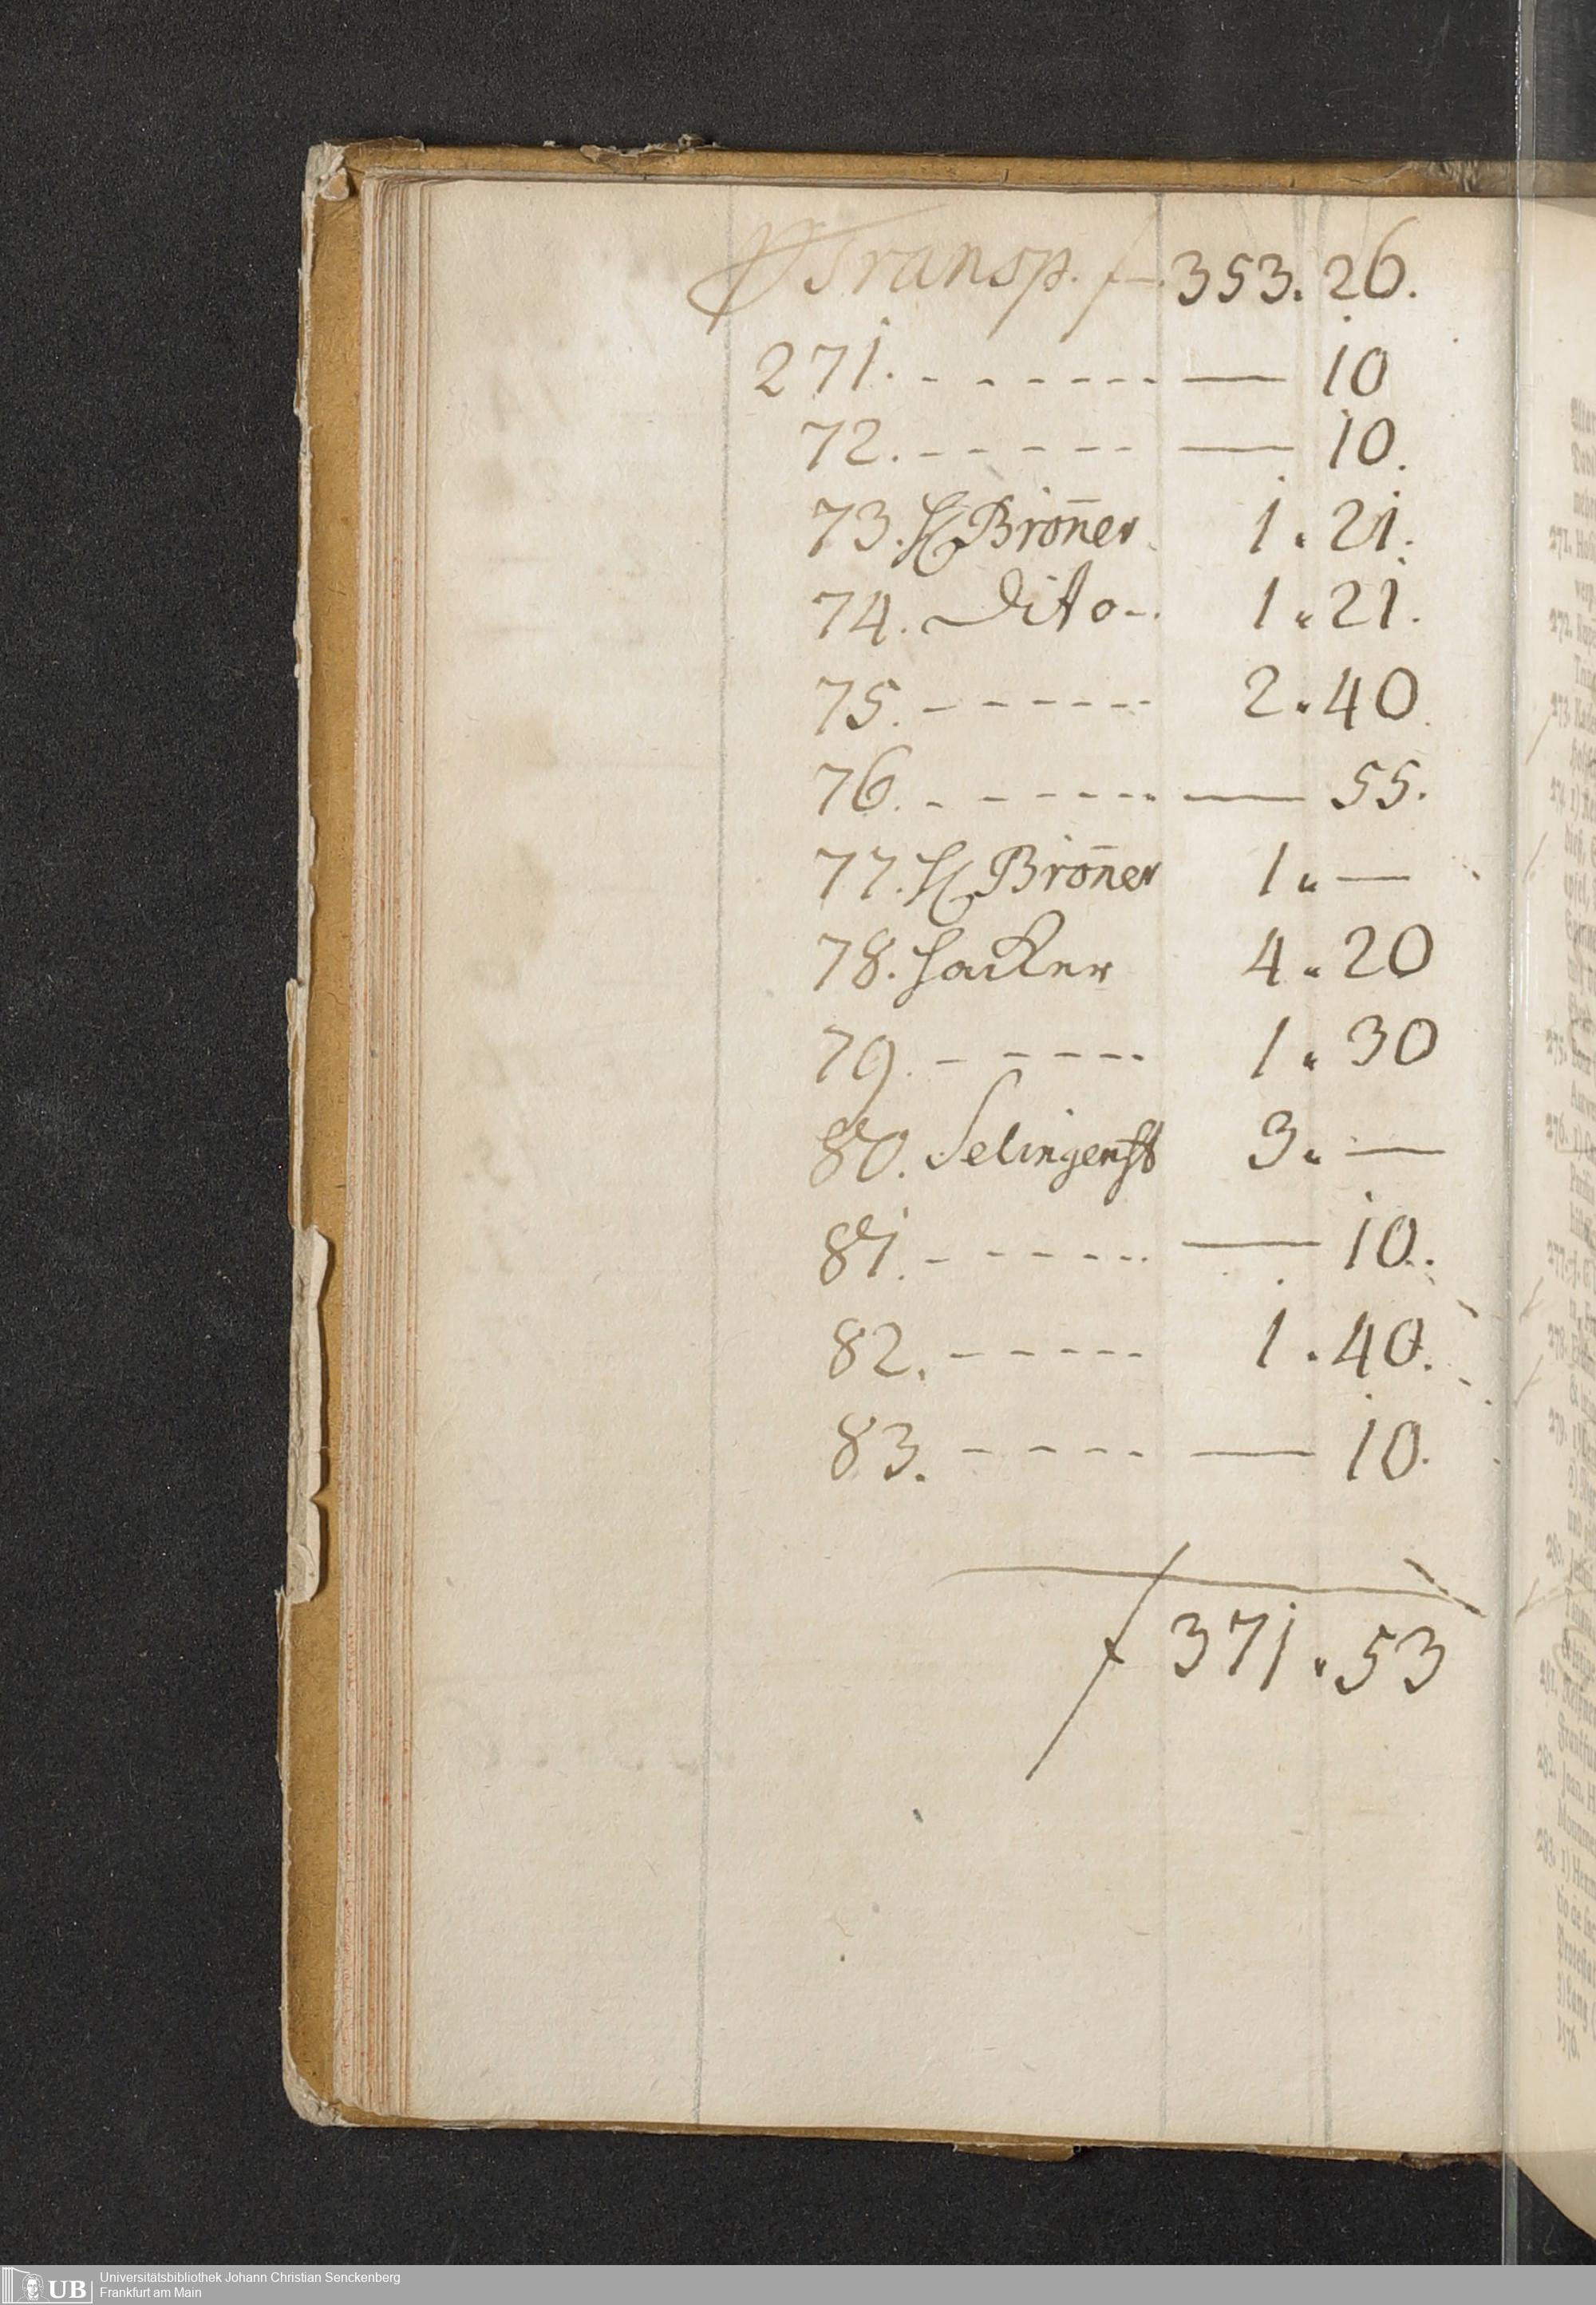 Transp. f 353. 26.
271. - - - - - - - — 10
72. - - - - - - — 10.
73. H Bron̄er 1. 21.
74. Dito -. 1. 21.
75. - - - - - - 2. 40.
76. - - - - - - - — 55.
77. H Bron̄er 1. —
78. Hacker 4. 20
79. - - - - - 1. 30
80. Selingenst 3. —
81. - - - - - - — 10.
82. - - - - - 1. 40.
83. - - - - — 10.
f 371. 53
UB Universitätsbibliothek Johann Christian Senckenberg
Frankfurt am Main